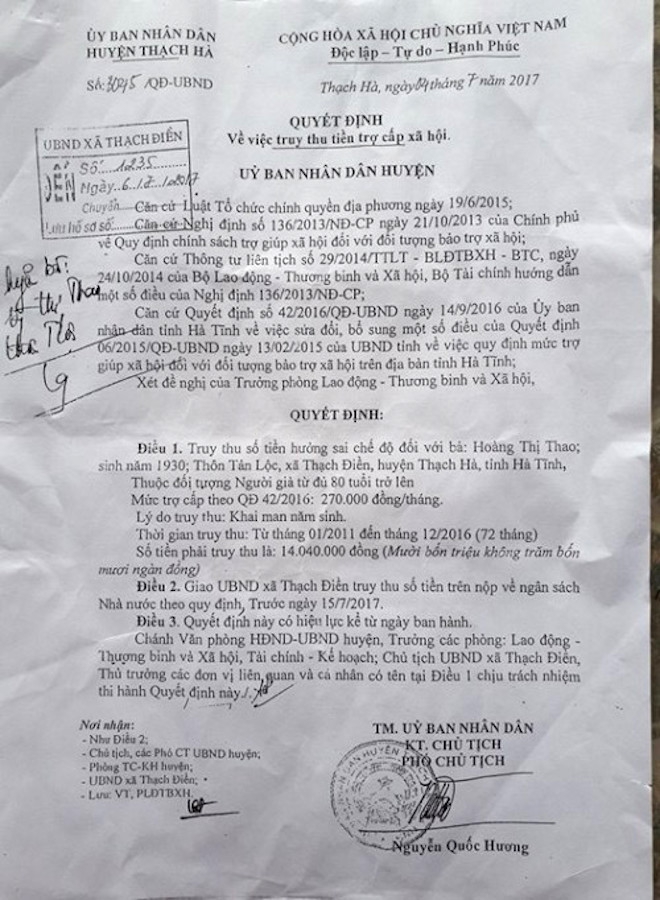 ỦY BAN NHÂN DÂN
HUYỆN THẠCH HÀ
Số: 3045 /QĐ-UBND
CỘNG HÒA XÃ HỘI CHỦ NGHĨA VIỆT NAM
Độc lập – Tự do – Hạnh Phúc
Thạch Hà, ngày 04 tháng 7 năm 2017
QUYẾT ĐỊNH
Về việc truy thu tiền trợ cấp xã hội.
UBND XÃ THẠCH ĐIỀN
ĐẾN
Số 1235
Ngày 6/7/2017
Chuyển
Lưu hồ sơ số
UỶ BAN NHÂN DÂN HUYỆN
Căn cứ Luật Tổ chức chính quyền địa phương ngày 19/6/2015;
Căn cứ Nghị định số 136/2013/NĐ-CP ngày 21/10/2013 của Chính phủ
về Quy định chính sách trợ giúp xã hội đối với đối tượng bảo trợ xã hội;
Căn cứ Thông tư liên tịch số 29/2014/TTLT - BLĐTBXH - BTC, ngày
24/10/2014 của Bộ Lao động - Thương binh và Xã hội, Bộ Tài chính hướng dẫn
một số điều của Nghị định 136/2013/NĐ-CP;
Căn cứ Quyết định số 42/2016/QĐ-UBND ngày 14/9/2016 của Ủy ban
nhân dân tỉnh Hà Tĩnh về việc sửa đổi, bổ sung một số điều của Quyết định
06/2015/QĐ-UBND ngày 13/02/2015 của UBND tỉnh về việc quy định mức trợ
giúp xã hội đối với đối tượng bảo trợ xã hội trên địa bàn tỉnh Hà Tĩnh;
Xét đề nghị của Trưởng phòng Lao động - Thương binh và Xã hội,
QUYẾT ĐỊNH:
Điều 1. Truy thu số tiền hưởng sai chế độ đối với bà: Hoàng Thị Thao;
sinh năm 1930; Thôn Tân Lộc, xã Thạch Điền, huyện Thạch Hà, tỉnh Hà Tĩnh,
Thuộc đối tượng Người già từ đủ 80 tuổi trở lên
Mức trợ cấp theo QĐ 42/2016: 270.000 đồng/tháng.
Lý do truy thu: Khai man năm sinh.
Thời gian truy thu: Từ tháng 01/2011 đến tháng 12/2016 (72 tháng)
Số tiền phải truy thu là: 14.040.000 đồng (Mười bốn triệu không trăm bốn
mươi ngàn đồng)
Điều 2. Giao UBND xã Thạch Điền truy thu số tiền trên nộp về ngân sách
Nhà nước theo quy định, Trước ngày 15/7/2017.
Điều 3. Quyết định này có hiệu lực kể từ ngày ban hành.
Chánh Văn phòng HĐND-UBND huyện, Trưởng các phòng: Lao động -
Thương binh và Xã hội, Tài chính - Kế hoạch; Chủ tịch UBND xã Thạch Điền,
Thủ trưởng các đơn vị liên quan và cá nhân có tên tại Điều 1 chịu trách nhiệm
thi hành Quyết định này./.
Nơi nhận:
- Như Điều 2;
- Chủ tịch, các Phó CT UBND huyện;
- Phòng TC-KH huyện;
- UBND xã Thạch Điền;
- Lưu: VT, PLĐTBXH.
TM. UỶ BAN NHÂN DÂN
KT. CHỦ TỊCH
PHÓ CHỦ TỊCH
Nguyễn Quốc Hương